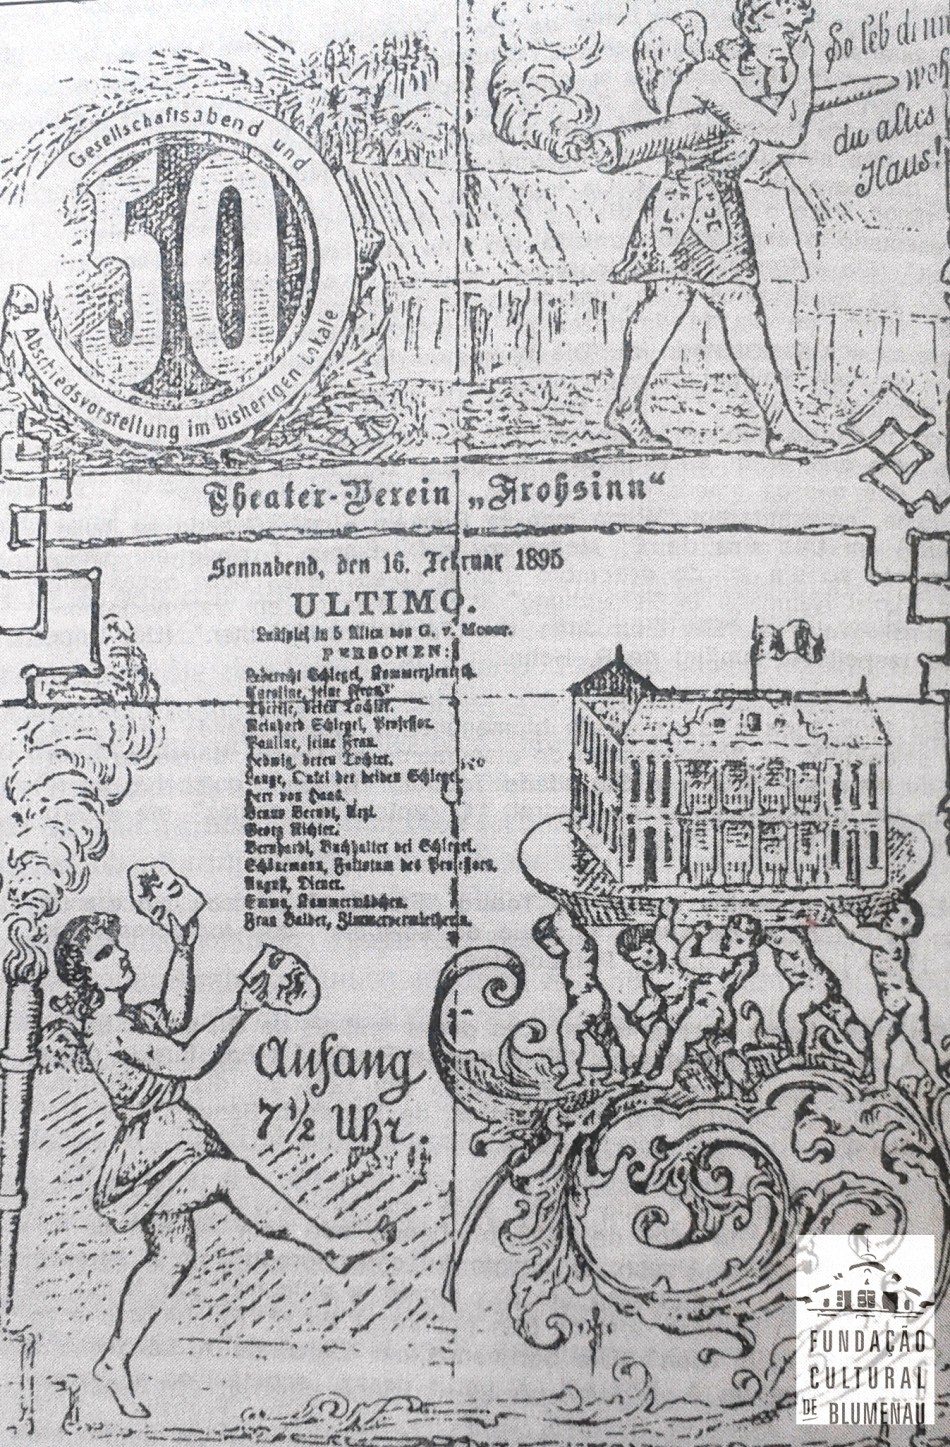 Gesellschaftsabend und
50
Abschiedsvorstellung im bisherigen Lokale
So leb denn
wohl
du altes
Haus!
Theater-Verein „Frohsinn“
Sonnabend, den 16. Februar 1895
ULTIMO.
Lustspiel in 5 Akten von G. v. Moser.
PERSONEN:
Leberecht Schlegel, Kommerzienrath.
Caroline, seine Frau.
Therese, deren Tochter.
Reinhard Schlegel, Professor.
Pauline, seine Frau.
Hedwig, deren Tochter.
Lange, Onkel der beiden Schlegel.
Herr von Haas.
Benno Berndt, Arzt.
Georg Richter.
Bernhardi, Buchhalter bei Schlegel.
Schönemann, Faktotum des Professors.
August, Diener.
Emma, Kammermädchen.
Frau Balder, Zimmervermietherin.
Anfang
7 1/2 Uhr.
FUNDAÇÃO
CULTURAL
DE BLUMENAU